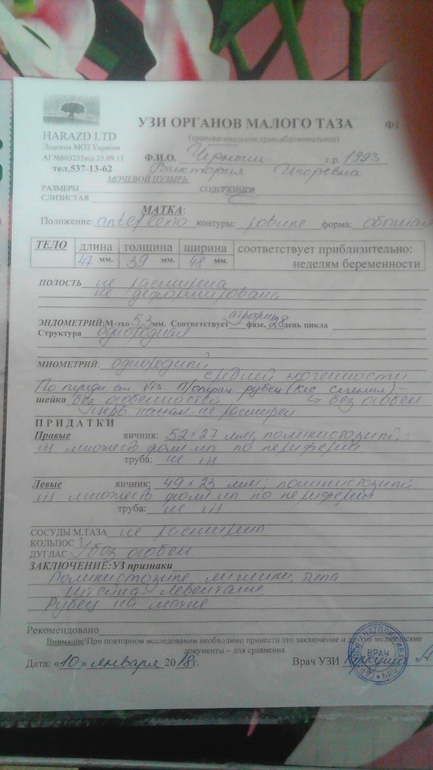 HARAZD LTD
Лицензия МОЗ Украины
АГ№603251від 23.09.11
тел.537-13-62
УЗИ ОРГАНОВ МАЛОГО ТАЗА
(трансвагинальное,трансабдоминальное)
Ф1
Ф.И.О. г.р. 1993
Виктория Игоревна
МОЧЕВОЙ ПУЗЫРЬ
РАЗМЕРЫ СОДЕРЖИМОЕ
СЛИЗИСТАЯ
МАТКА:
Положение: anteflexio контуры: ровные форма:
ТЕЛО длина толщина ширина соответствует приблизительно:
47 мм. 39 мм. 48 мм. неделям беременности
ПОЛОСТЬ не расширена
не деформирована
ЭНДОМЕТРИЙ М-эхо 5,3 мм. Соответствует фазе, 28 день цикла
Структура однородная
МИОМЕТРИЙ однородный
средней эхогенности
По передн ст п/операц рубец - без особен
шейка без особенностей
церв канал не расширен
ПРИДАТКИ
Правые яичник: 52×27 мм, поликистозный
множеств по периферии
труба: не
Левые яичник: 49×23 мм, поликистозный
множеств по периферии
труба: не
СОСУДЫ М.ТАЗА не расширены
КОЛЬПОС
ДУГЛАС без особен
ЗАКЛЮЧЕНИЕ:УЗ признаки
типа
Штейна-Левенталя
Рубец на матке
Рекомендовано
Внимание!При повторном исследовании необходимо принести это заключение и другие медицинские
документы – для сравнения
Дата: «10» января 2018г. Врач УЗИ
ВРАЧ